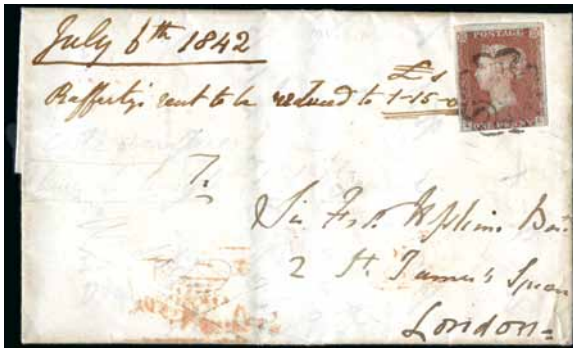 POSTAGE
July 6th 1842
£ s
Rafferty's rent to be reduced to 1-15-0
ONE PENNY
To
Sir Frs. Hopkins Bart.
2 St. James's Square
London